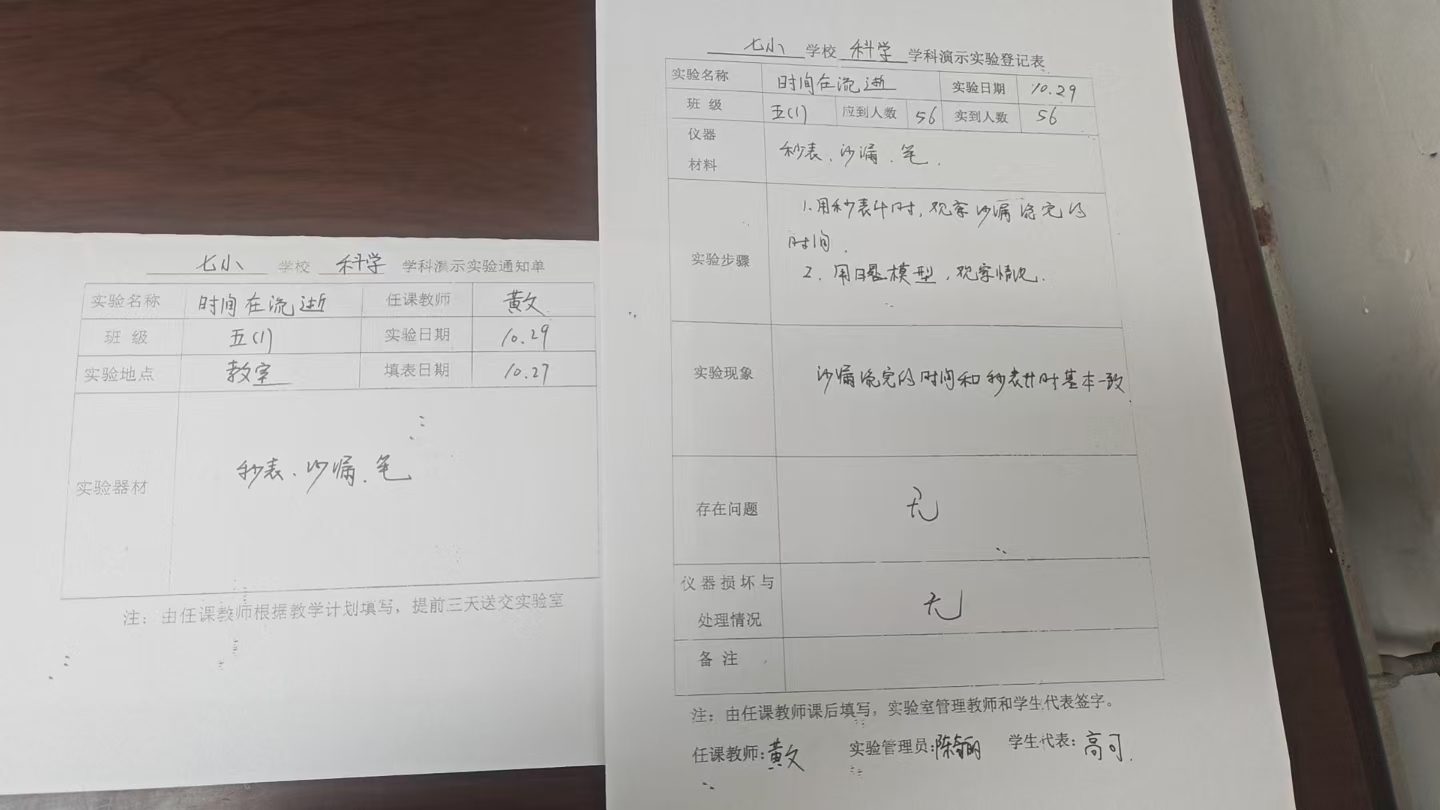 七小 学校 科学 学科演示实验通知单
实验名称 时间在流逝 任课教师 黄文
班 级 五(1) 实验日期 10.29
实验地点 教室 填表日期 10.27
实验器材 秒表、沙漏、笔
注：由任课教师根据教学计划填写，提前三天送交实验室
七小 学校 科学 学科演示实验登记表
实验名称 时间在流逝 实验日期 10.29
班 级 五(1) 应到人数 56 实到人数 56
仪器
材料
秒表、沙漏、笔.
实验步骤
1.用秒表计时，观察沙漏流完的
时间.
2. 用日晷模型，观察情况.
实验现象 沙漏流完的时间和秒表计时基本一致
存在问题 无
仪器损坏与
处理情况
无
备 注
注：由任课教师课后填写，实验室管理教师和学生代表签字。
任课教师:黄文 实验管理员:陈 学生代表:高可